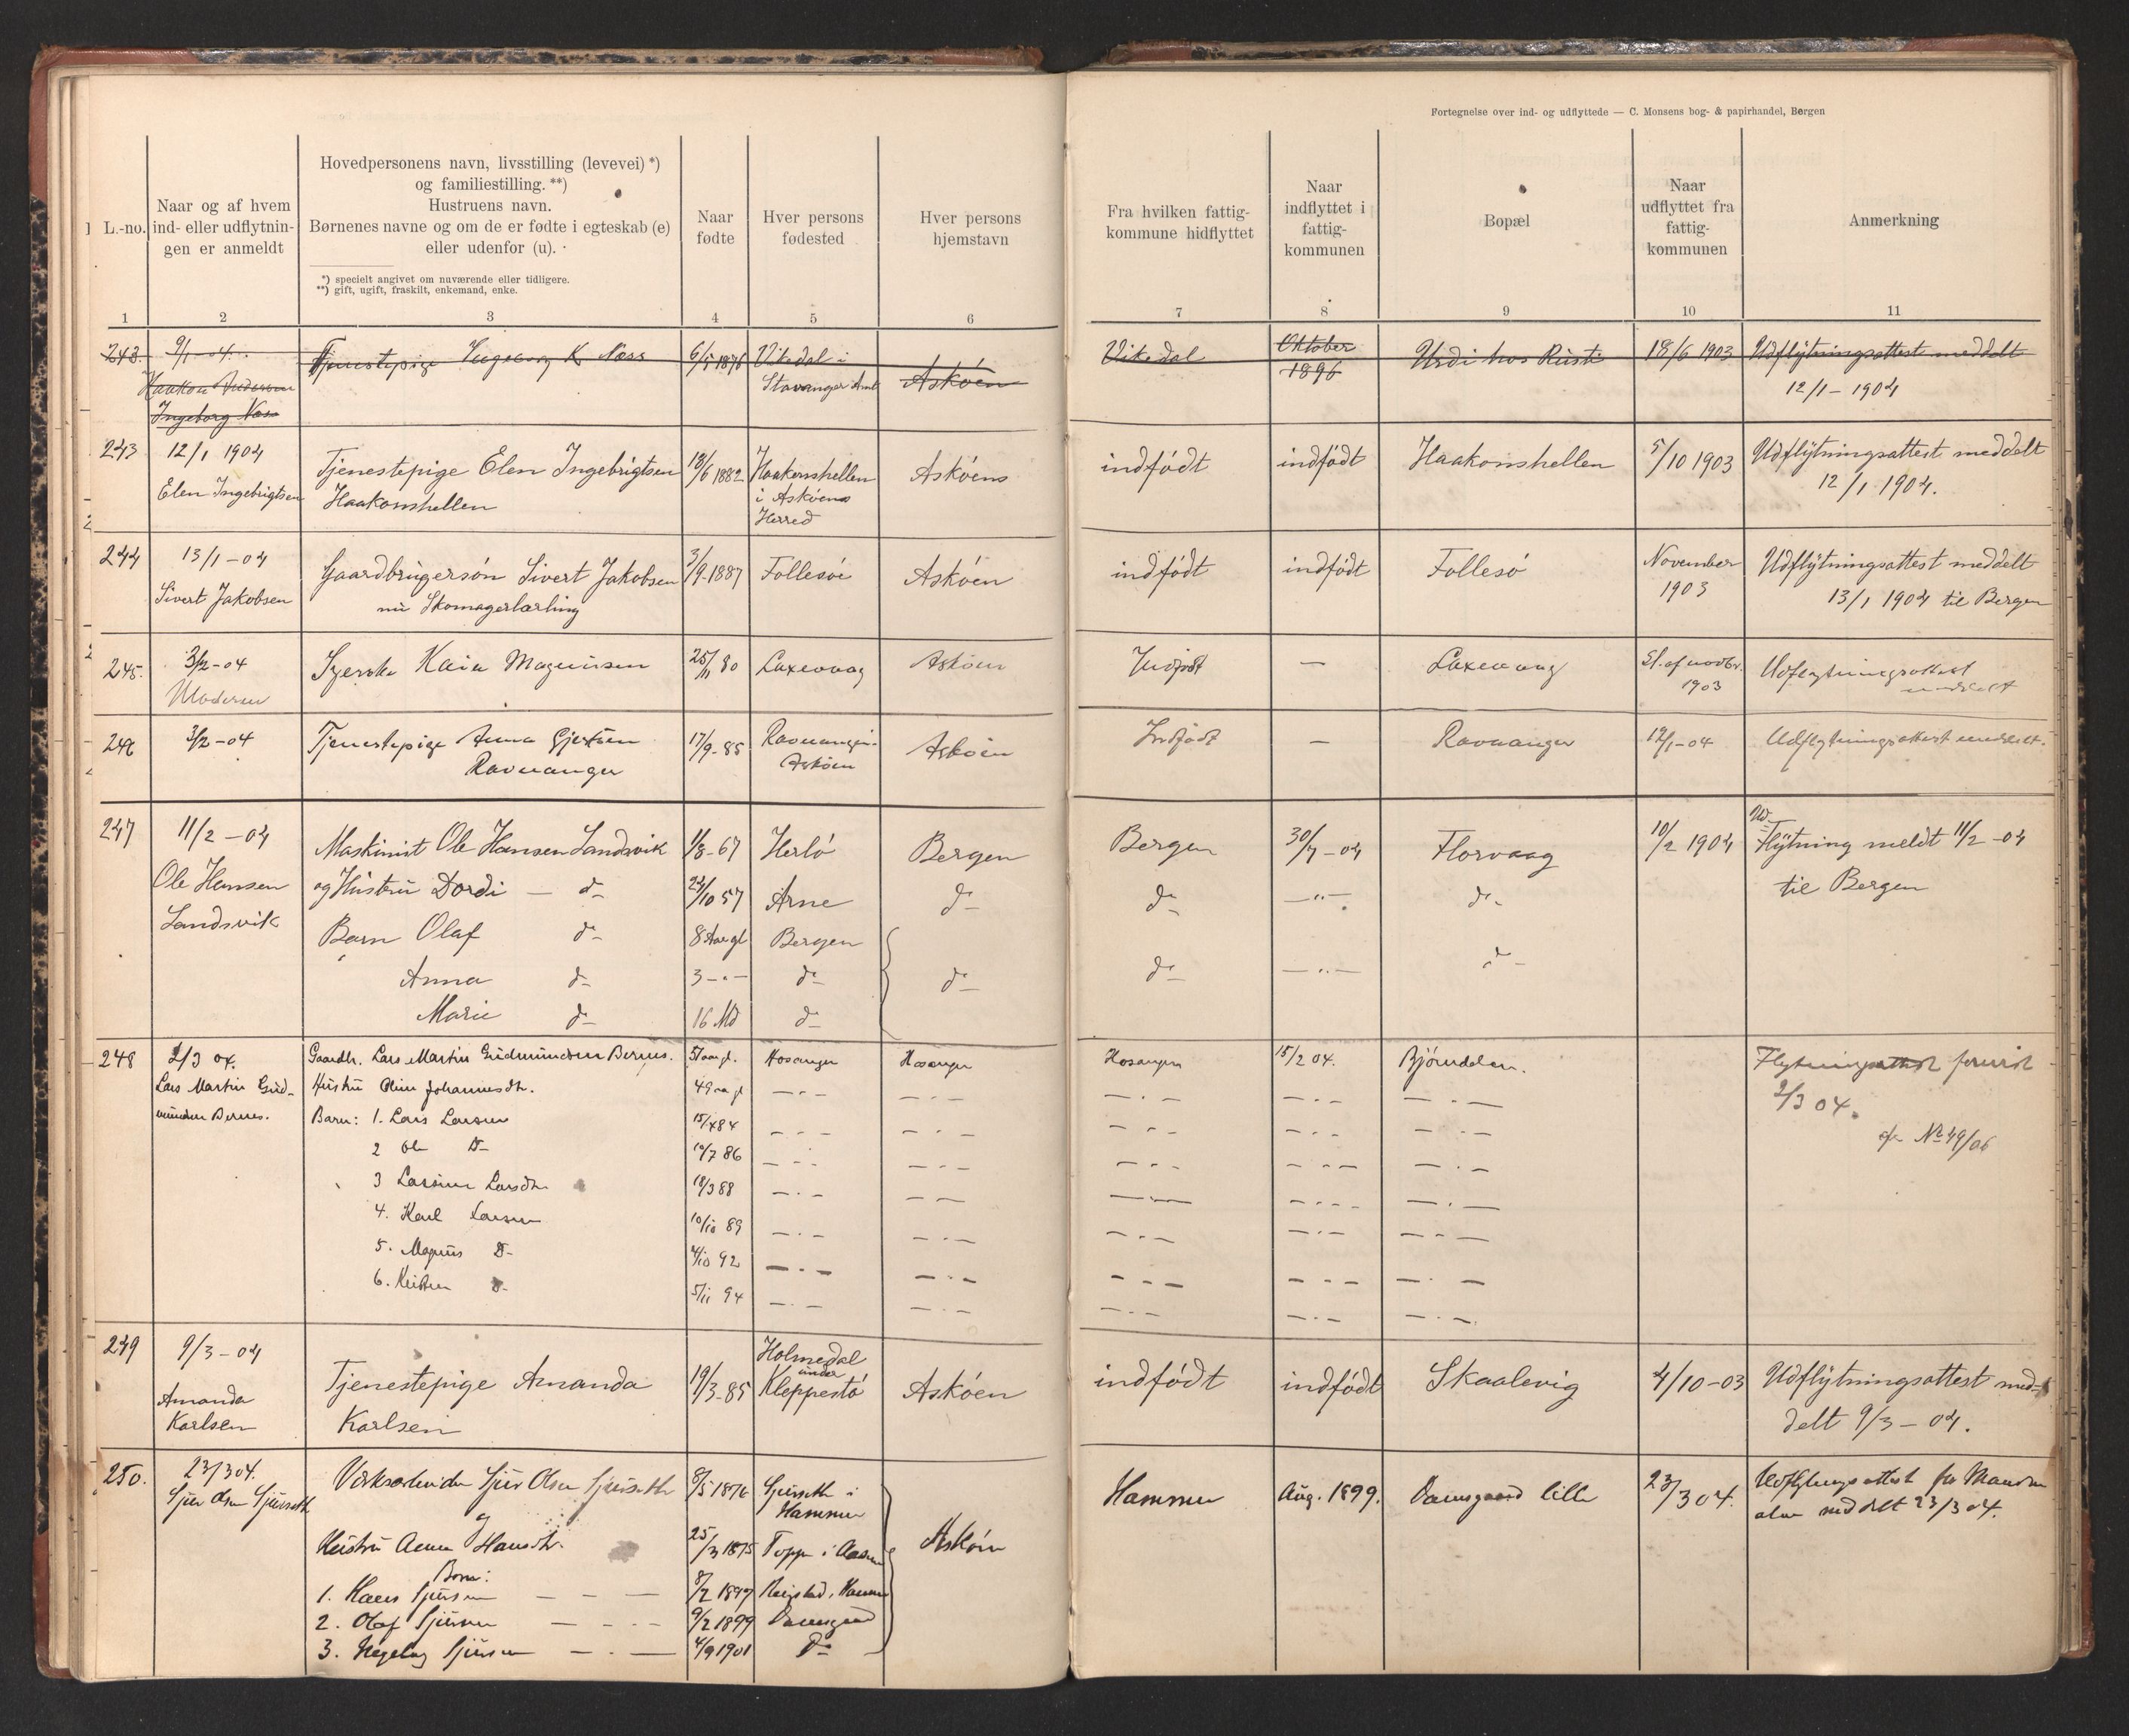 Fortegnelse over ind- og udflyttede — C. Monsens bog- & papirhandel, Bergen
L.-no.
Naar og af hvem
ind- eller udflytnin-
gen er anmeldt
Hovedpersonens navn, livsstilling (levevei)*)
og familiestilling.**)
Hustruens navn.
Børnenes navne og om de er fødte i egteskab (e)
eller udenfor (u).
*) specielt angivet om nuværende eller tidligere.
**) gift, ugift, fraskilt, enkemand, enke.
Naar
fødte
Hver persons
fødested
Hver persons
hjemstavn
Fra hvilken fattig-
kommune hidflyttet
Naar
indflyttet i
fattig-
kommunen
Bopæl
Naar
udflyttet fra
fattig-
kommunen
Anmerkning
1 2 3 4 5 6 7 8 9 10 11
243. 9/1-04. Tjenestepige Ingeborg K Næss 6/5 1876 Vikedal i Askøen Vikedal Oktober Urdi hos Rusti 18/6 1903 Udflytningsattest meddelt
Haakon Anderson Stavanger Amt 1896 12/1 - 1904
Ingeborg Næss
243 12/1 1904 Tjenestepige Elen Ingebrigtsen 18/6 1882 Haakonshellen Askøens indfødt indfødt Haakonshellen 5/10 1903 Udflytningsattest meddelt
Elen Ingebrigtsen Haakonshellen i Askøens 12/1 1904.
Herred
244 13/1-04 Gaardbrugersøn Sivert Jakobsen 3/9-1887 Follesøe Askøen indfødt indfødt Follesø November Udflytningsattest meddelt
Sivert Jakobsen nu Skomagerlærling 1903 13/1 1904 til Bergen
245. 3/2-04 Syerske Kaia Magnusen 25/11 80 Laxevaag Askøen Indfødt — Laxevaag Sl. af novbr. Udflytningsattest
Moderen 1903 meddelt
246 3/2-04 Tjenestepige Anna 17/9-85 Ravnanger- Askøen Indfødt — Ravnanger 12/1-04 Udflytningsattest meddelt.
Ravnanger Askøen
247 11/2-04 Maskinist Ole Hansen Landsvik 1/8-67 Herlø Bergen Bergen 30/7-04 Florvaag 10/2 1904 Ud-
Flytning meldt 11/2-04
Ole Hansen og Hustru Dordi — d- 24/10 57 Arne d- d- —"— d- til Bergen
Landsvik Barn Olaf d- 8 Aar gl Bergen
Anna d- 3 -"- d- d- d- —"— d-
Marie d- 16 Md d-
248 2/3 04. Gaardbr. Lars Martin Gudmundsen Bernes. 51 aar gl. Hosanger Hosanger Hosanger 15/2 04. Bjørndalen. Flytningsattest
Lars Martin Gud- Hustru Oline Johannesdtr. 49 aar gl —"— —"— —"— —"— —"— 2/3 04.
mundsen Bernes. Barn: 1. Lars Larsen —"— —"— —"— —"— —"— No 49/06
2 Ole D- 10/7 86 —"— —"— —"— —"— —"—
3 Larsine Larsdtr 18/3 88 —"— —"— —"— —"— —"—
4. Karl Larsen 10/10 89 —"— —"— —"— —"— —"—
5. Magnus D- 4/10 92 —"— —"— —"— —"— —"—
6. Kristen D- 5/11 94 —"— —"— —"— —"— —"—
249 9/3-04 Tjenestepige Amanda 19/3-85 Holmedal Askøen indfødt indfødt Skaalevig 4/10-03 Udflytningsattest med-
Amanda Karlsen under delt 9/3-04.
Karlsen Kleppestø
250. 23/3 04. Verksarbeider Sjur Olsen Sjurseth 8/5 1876 Sjurseth i Askøen Hammer Aug. 1899. Damsgaard lille 23/3 04. Udflytningsattest for Manden
Sjur Olsen Sjurseth og Hammer alene meddelt 23/3 04.
Hustru Anna Hansdtr. 25/3 1875 Toppe i Aasane
Børn:
1. Hans Sjursen — — — 8/2 1897 Hammer
2. Olaf Sjursen — — — 9/2 1899 Damsgaard
3. Ingeborg Sjursen — — — 4/9 1901 D-